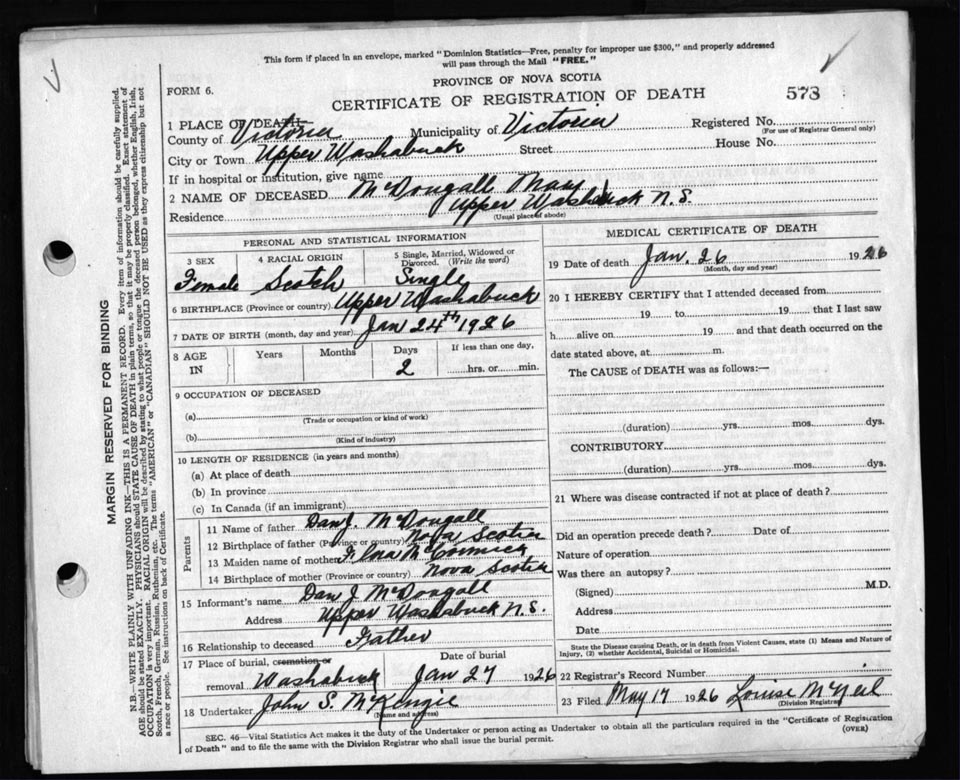 This form if placed in an envelope, marked "Dominion Statistics—Free, penalty for improper use $300," and properly addressed
will pass through the Mail "FREE."
PROVINCE OF NOVA SCOTIA
FORM 6.
CERTIFICATE OF REGISTRATION OF DEATH
573
1 PLACE OF DEATH
County of Victoria Municipality of Victoria Registered No.
(For use of Registrar General only)
City or Town Upper Washabuck Street House No.
If in hospital or institution, give name
2 NAME OF DECEASED McDougall Mary
Residence Upper Washabuck N.S.
(Usual place of abode)
PERSONAL AND STATISTICAL INFORMATION
3 SEX 4 RACIAL ORIGIN 5 Single, Married, Widowed or Divorced. (Write the word)
Female Scotch Single
6 BIRTHPLACE (Province or country) Upper Washabuck
7 DATE OF BIRTH (month, day and year) Jan 24th 1926
8 AGE IN Years Months Days If less than one day,
2 hrs. or min.
9 OCCUPATION OF DECEASED
(a)
(Trade or occupation or kind of work)
(b)
(Kind of industry)
10 LENGTH OF RESIDENCE (in years and months)
(a) At place of death
(b) In province
(c) In Canada (if an immigrant)
Parents
11 Name of father Dan J. McDougall
12 Birthplace of father (Province or country) Nova Scotia
13 Maiden name of mother Flora McCormick
14 Birthplace of mother (Province or country) Nova Scotia
15 Informant's name Dan J McDougall
Address Upper Washabuck N.S.
16 Relationship to deceased Father
17 Place of burial, cremation or Date of burial
removal Washabuck Jan 27 1926
18 Undertaker John S. McKenzie
(Name and address)
MEDICAL CERTIFICATE OF DEATH
19 Date of death Jan. 26 1926
(Month, day and year)
20 I HEREBY CERTIFY that I attended deceased from
19 to 19 that I last saw
h alive on 19 and that death occurred on the
date stated above, at m.
The CAUSE of DEATH was as follows:—
(duration) yrs. mos. dys.
CONTRIBUTORY
(duration) yrs. mos. dys.
21 Where was disease contracted if not at place of death?
Did an operation precede death? Date of
Nature of operation
Was there an autopsy?
(Signed) M.D.
Address
Date
State the Disease causing Death, or in death from Violent Causes, state (1) Means and Nature of
Injury, (2) whether Accidental, Suicidal or Homicidal.
22 Registrar's Record Number
23 Filed May 17 1926 Louise McNeil
(Division Registrar)
SEC. 46—Vital Statistics Act makes it the duty of the Undertaker or person acting as Undertaker to obtain all the particulars required in the "Certificate of Registration
of Death" and to file the same with the Division Registrar who shall issue the burial permit. (OVER)
MARGIN RESERVED FOR BINDING
N.B.—WRITE PLAINLY WITH UNFADING INK—THIS IS A PERMANENT RECORD. Every item of information should be carefully supplied.
AGE should be stated EXACTLY. PHYSICIANS should STATE CAUSE OF DEATH in plain terms, so that it may be properly classified. Exact statement of
OCCUPATION is very important. RACIAL ORIGIN will be described by stating to what people or tongue the deceased person belonged, whether English, Irish,
Scotch, French, German, Russian, Ruthenian, etc. The terms "AMERICAN" or "CANADIAN" SHOULD NOT BE USED as they express citizenship but not
a race or people. See instructions on back of Certificate.